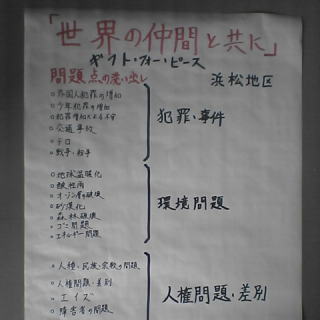 「世界の仲間と共に」
ギフト・フォー・ピース
問題点の洗い出し
浜松地区
○外国人犯罪の増加
○少年犯罪の増加
○犯罪増加による不安
○交通事故
○テロ
○戦争・紛争
犯罪・事件
○地球温暖化
○酸性雨
○オゾン層の破壊
○砂漠化
○森林破壊
○ゴミ問題
○エネルギー問題
環境問題
○人種・民族・宗教の問題
○人権問題・差別
○エイズ
○障害者の問題
人権問題・差別